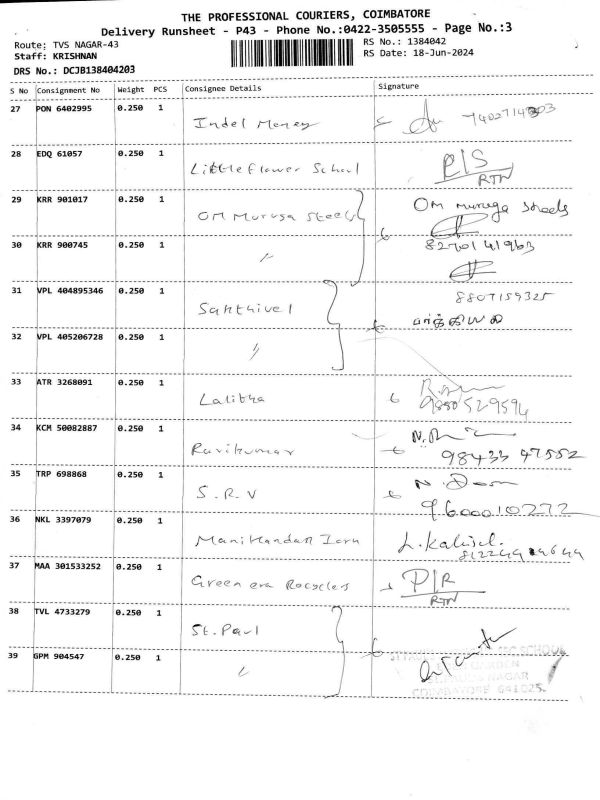 THE PROFESSIONAL COURIERS, COIMBATORE
Delivery Runsheet - P43 - Phone No.:0422-3505555 - Page No.:3
Route: TVS NAGAR-43
RS No.: 1384042
Staff: KRISHNAN
RS Date: 18-Jun-2024
DRS No.: DCJB138404203
S No Consignment No Weight PCS Consignee Details Signature
27 PON 6402995 0.250 1 Indel Money
28 EDQ 61057 0.250 1 Littleflower School P/S RTN
29 KRR 901017 0.250 1 OM Muruga Steels OM muruga steels
30 KRR 900745 0.250 1 〃 82701 41963
31 VPL 404895346 0.250 1 Santhivel 8807159325
32 VPL 405206728 0.250 1 〃
33 ATR 3268091 0.250 1 Lalitha 9880529594
34 KCM 50082887 0.250 1 Ravikumar 98433 47552
35 TRP 698868 0.250 1 S.R.V 9600010272
36 NKL 3397079 0.250 1 Manikandan
37 MAA 301533252 0.250 1 Green era Recyclers P/R RTN
38 TVL 4733279 0.250 1 St. Paul
39 GPM 904547 0.250 1 〃
SCHOOL
NAGAR
COIMBATORE 641025.